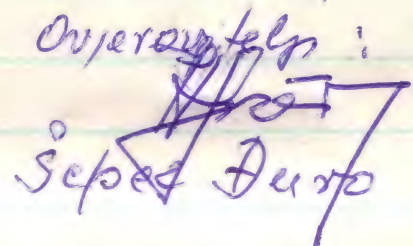 Ovjerovitelj:
Šepec Đuro